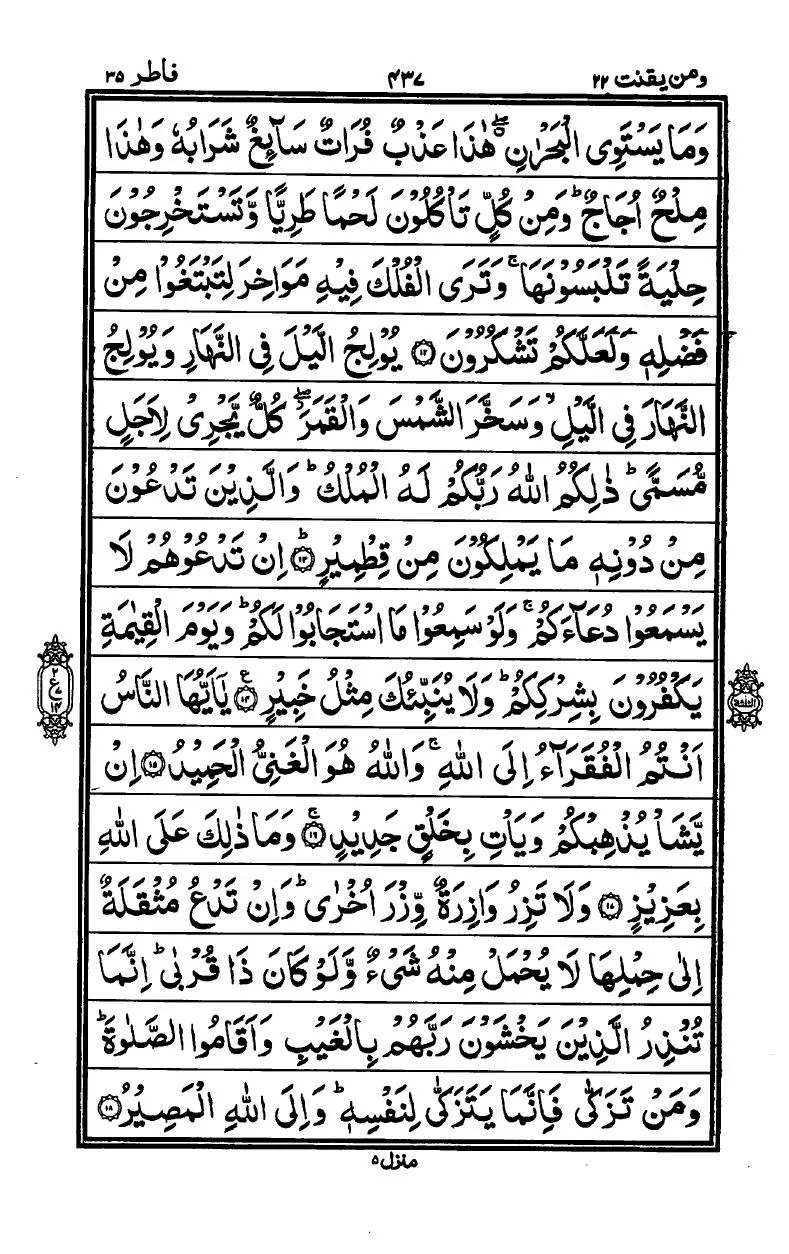 ومن یقنت ۲۲ ۴۳۷ فاطر ۳۵
وَمَا يَسْتَوِى الْبَحْرٰنِ ۖ هٰذَا عَذْبٌ فُرَاتٌ سَآئِغٌ شَرَابُهٗ وَهٰذَا
مِلْحٌ اُجَاجٌ ؕ وَمِنْ كُلٍّ تَاْكُلُوْنَ لَحْمًا طَرِيًّا وَّتَسْتَخْرِجُوْنَ
حِلْيَةً تَلْبَسُوْنَهَا ۚ وَتَرَى الْفُلْكَ فِيْهِ مَوَاخِرَ لِتَبْتَغُوْا مِنْ
فَضْلِهٖ وَلَعَلَّكُمْ تَشْكُرُوْنَ ۝۱۲ يُوْلِجُ الَّيْلَ فِى النَّهَارِ وَيُوْلِجُ
النَّهَارَ فِى الَّيْلِ ۙ وَسَخَّرَ الشَّمْسَ وَالْقَمَرَ ۖ كُلٌّ يَّجْرِىْ لِاَجَلٍ
مُّسَمًّى ؕ ذٰلِكُمُ اللّٰهُ رَبُّكُمْ لَهُ الْمُلْكُ ؕ وَالَّذِيْنَ تَدْعُوْنَ
مِنْ دُوْنِهٖ مَا يَمْلِكُوْنَ مِنْ قِطْمِيْرٍ ؕ ۝۱۳ اِنْ تَدْعُوْهُمْ لَا
يَسْمَعُوْا دُعَآءَكُمْ ۚ وَلَوْ سَمِعُوْا مَا اسْتَجَابُوْا لَكُمْ ؕ وَيَوْمَ الْقِيٰمَةِ
يَكْفُرُوْنَ بِشِرْكِكُمْ ؕ وَلَا يُنَبِّئُكَ مِثْلُ خَبِيْرٍ ۝۱۴ يٰۤاَيُّهَا النَّاسُ
اَنْتُمُ الْفُقَرَآءُ اِلَى اللّٰهِ ۚ وَاللّٰهُ هُوَ الْغَنِىُّ الْحَمِيْدُ ۝۱۵ اِنْ
يَّشَاْ يُذْهِبْكُمْ وَيَاْتِ بِخَلْقٍ جَدِيْدٍ ۚ ۝۱۶ وَمَا ذٰلِكَ عَلَى اللّٰهِ
بِعَزِيْزٍ ۝۱۷ وَلَا تَزِرُ وَازِرَةٌ وِّزْرَ اُخْرٰى ؕ وَاِنْ تَدْعُ مُثْقَلَةٌ
اِلٰى حِمْلِهَا لَا يُحْمَلْ مِنْهُ شَىْءٌ وَّلَوْ كَانَ ذَا قُرْبٰى ؕ اِنَّمَا
تُنْذِرُ الَّذِيْنَ يَخْشَوْنَ رَبَّهُمْ بِالْغَيْبِ وَاَقَامُوا الصَّلٰوةَ ؕ
وَمَنْ تَزَكّٰى فَاِنَّمَا يَتَزَكّٰى لِنَفْسِهٖ ؕ وَاِلَى اللّٰهِ الْمَصِيْرُ ۝۱۸
منزل ۵
۲
ع
۱۴